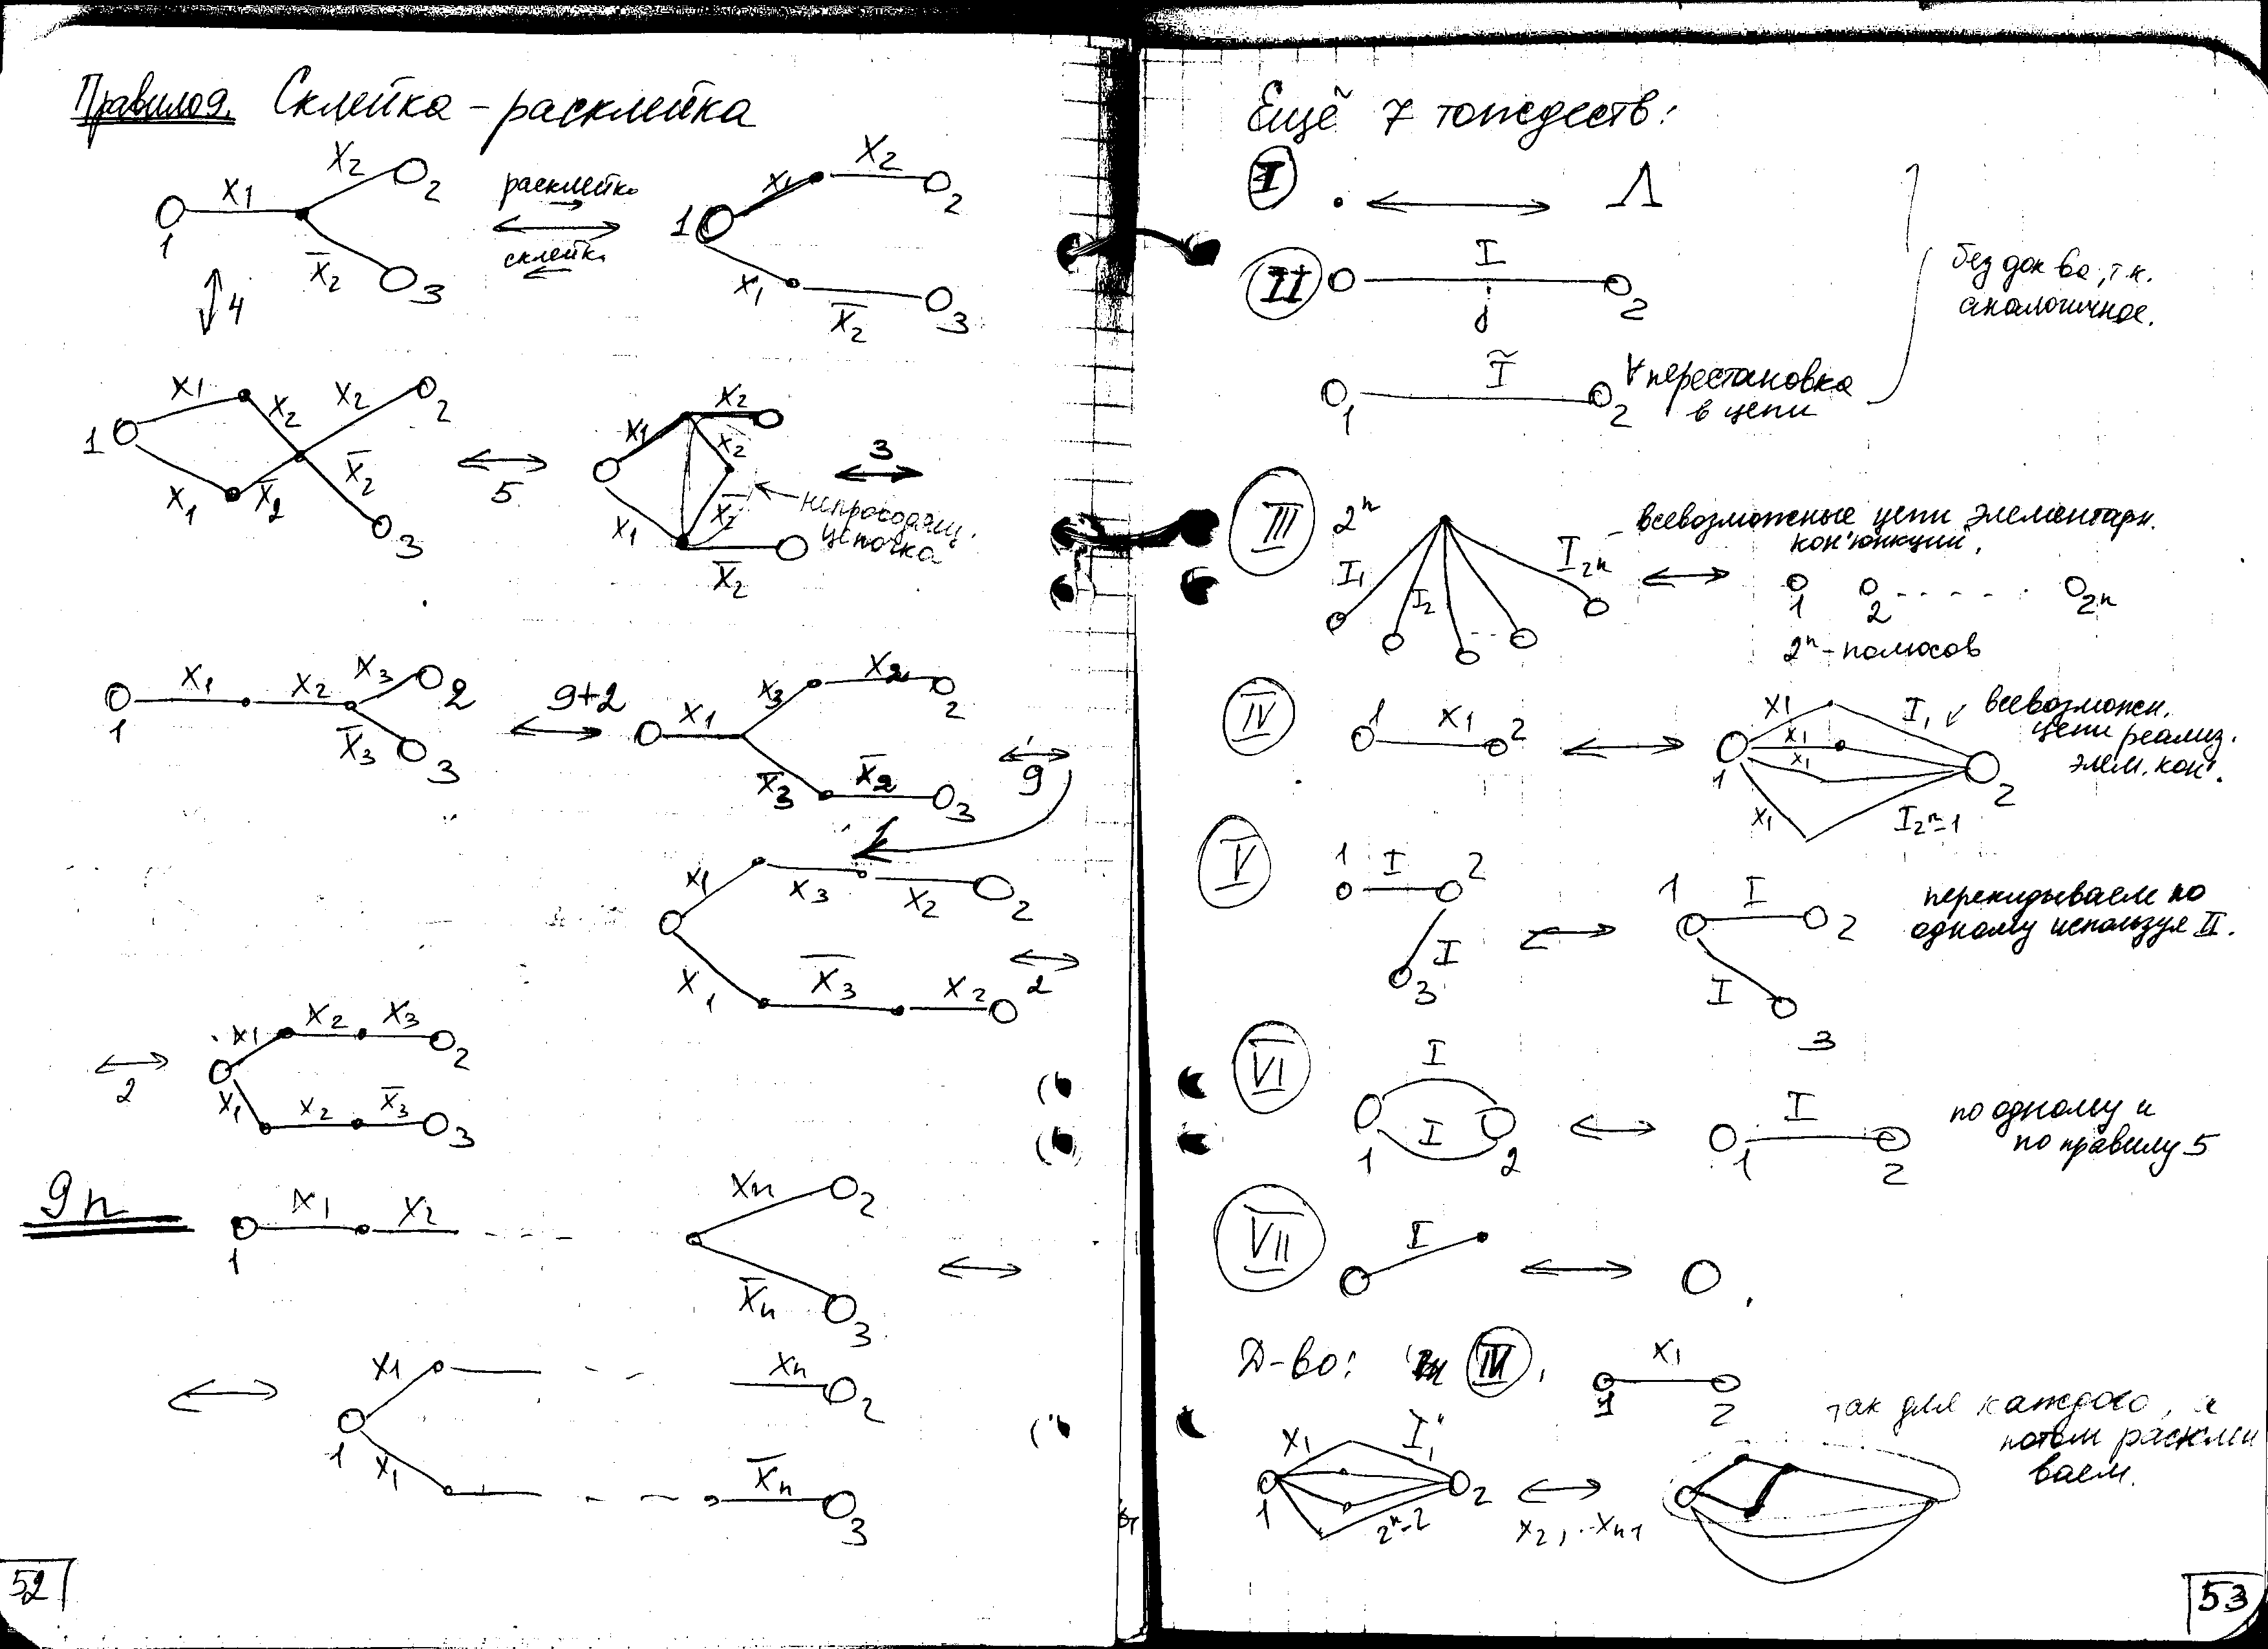 Правило 9. Склейка – расклейка
x₁ x₂ x̄₂ 1 2 3
расклейка
склейка
x₁ x₂ x₁ x̄₂ 1 2 3
4
1 x₁ x₂ x₂ 2
x₁ x̄₂ x̄₂ 3
5
x₁ x₂ x₂
x₁ x̄₂ x̄₂
непроводящ.
цепочка
3
1 x₁ x₂ x₃ 2
x̄₃ 3
9+2
x₁ x₃ x₂ 2
x̄₃ x̄₂ 3
9
x₁ x₃ x₂ 2
x₁ x̄₃ x₂
2
2
x₁ x₂ x₃ 2
x₁ x₂ x̄₃ 3
9n
1 x₁ x₂ - - - - xₙ 2
x̄ₙ 3
x₁ - - xₙ 2
1 x₁ - - - x̄ₙ 3
52
Ещё 7 тождеств:
I . Λ
II I
j 2
Ĩ
1 2 ∀ перестановка
в цепи
без док ва, т.к.
аналогичное.
III 2ⁿ
I₁ I₂ I₂ⁿ
всевозможные цепи элементарн.
кон'юнкции.
1 2 - - - - 2ⁿ
2ⁿ - полюсов
IV 1 x₁ 2
x₁ x₁ x₁ x₁ 1 2
I₁ всевозможн.
цепи реализ.
элем. кон'.
I₂ⁿ⁻¹
V 1 I 2
I 3
1 I 2
I 3
перекидываем по
одному используя II.
VI I
I
1 2
I
1 2
по одному и
по правилу 5
VII I
Д-во: III, x₁
1 2
так для каждого, а
потом расклеи
ваем.
x₁ I'₁
1 2
2ⁿ-2
x₂, .. xₙ₋₁
53